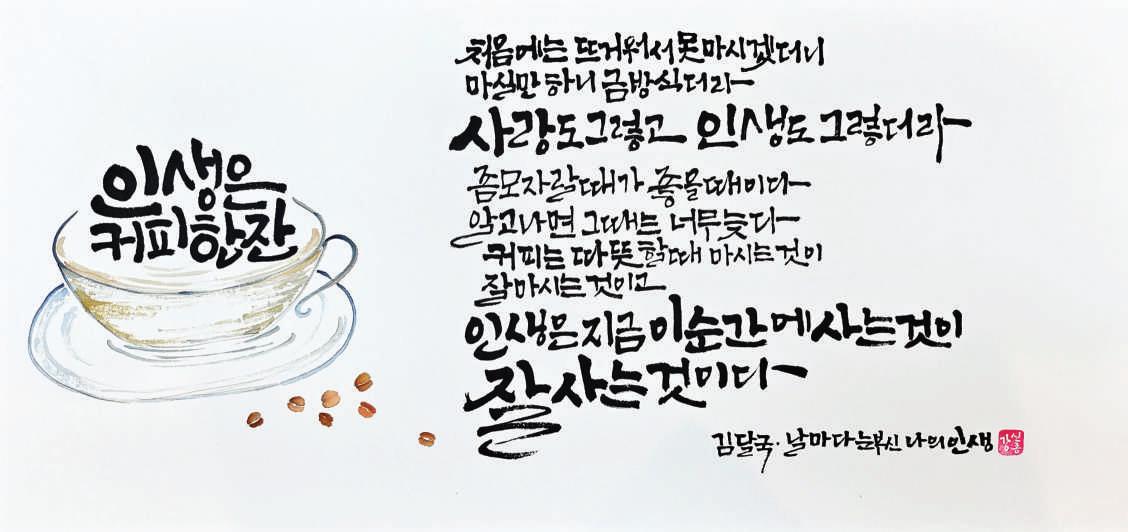 인생은
커피 한잔
처음에는 뜨거워서 못마시겠더니
마실만 하니 금방 식더라
사랑도 그렇고 인생도 그렇더라
좀모자랄때가 좋을때이다
알고나면 그때는 너무늦다
커피는 따뜻할때 마시는것이
잘마시는것이고
인생은 지금 이순간에 사는것이
잘 사는것이다
김달국·날마다 눈부신 나의 인생